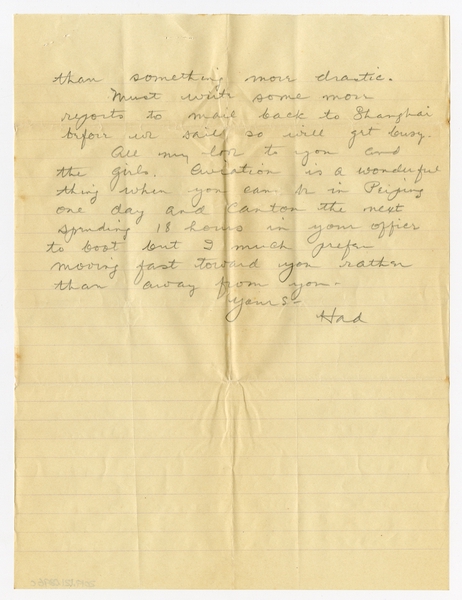 than something more drastic.
Must write some more
reports to mail back to Shanghai
before we sail, so will get busy.
All my love to you and
the girls. Aviation is a wonderful
thing when you can be in Peiping
one day and Canton the next
spending 18 hours in your office
to boot but I much prefer
moving fast toward you rather
than away from you.
Yours-
Had